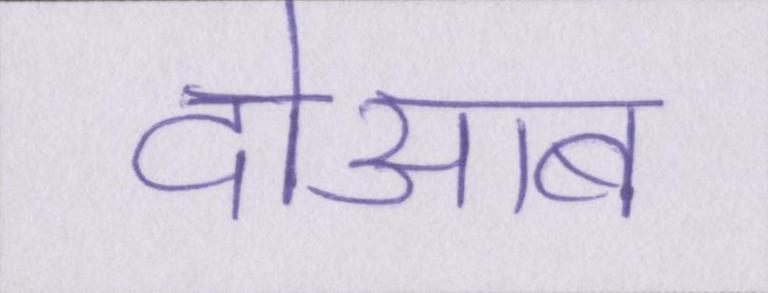 दोआब